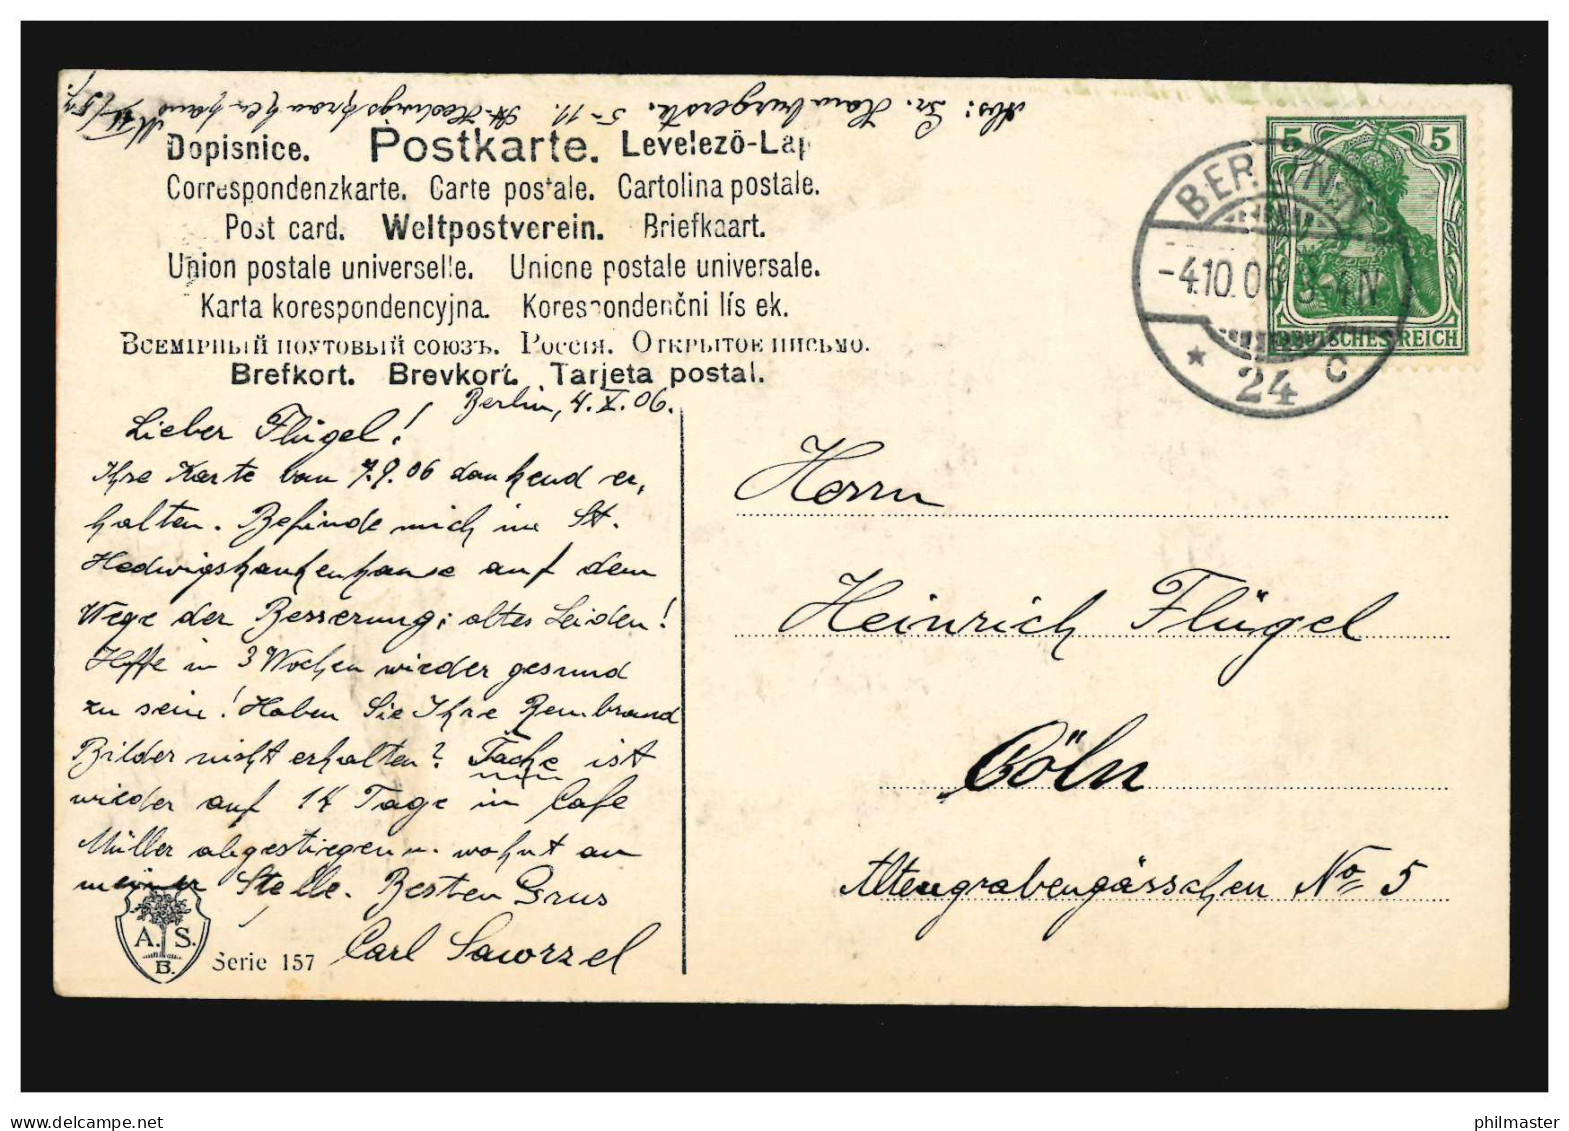 Abs: Gr. Hamburgerstr. 5-11. St. Hedwigskrankenhaus
Dopisnice. Postkarte. Levelező-Lap
Correspondenzkarte. Carte postale. Cartolina postale.
Post card. Weltpostverein. Briefkaart.
Union postale universelle. Unione postale universale.
Karta korespondencyjna. Korespondenční lístek.
Всемірный почтовый союзъ. Россія. Открытое письмо.
Brefkort. Brevkort. Tarjeta postal.
5 5
DEUTSCHES REICH
BERLIN N
-4.10.06 3-4N
* 24 c
Berlin, 4.X.06.
Lieber Flügel!
Ihre Karte vom 7.9.06 dankend er,
halten. Befinde mich im St.
Hedwigskankenhause auf dem
Wege der Besserung; altes Leiden!
Hoffe in 3 Wochen wieder gesund
zu sein! Haben Sie Ihre Rembrand
Bilder nicht erhalten? Tacke ist
wieder auf 14 Tage in Cafe
Müller abgestiegen u. wohnt an
meiner Stelle. Besten Grus
Carl Saworzel
Herrn
Heinrich Flügel
Cöln
Altengrabengässchen No 5
A. S.
B.
Serie 157
philmaster